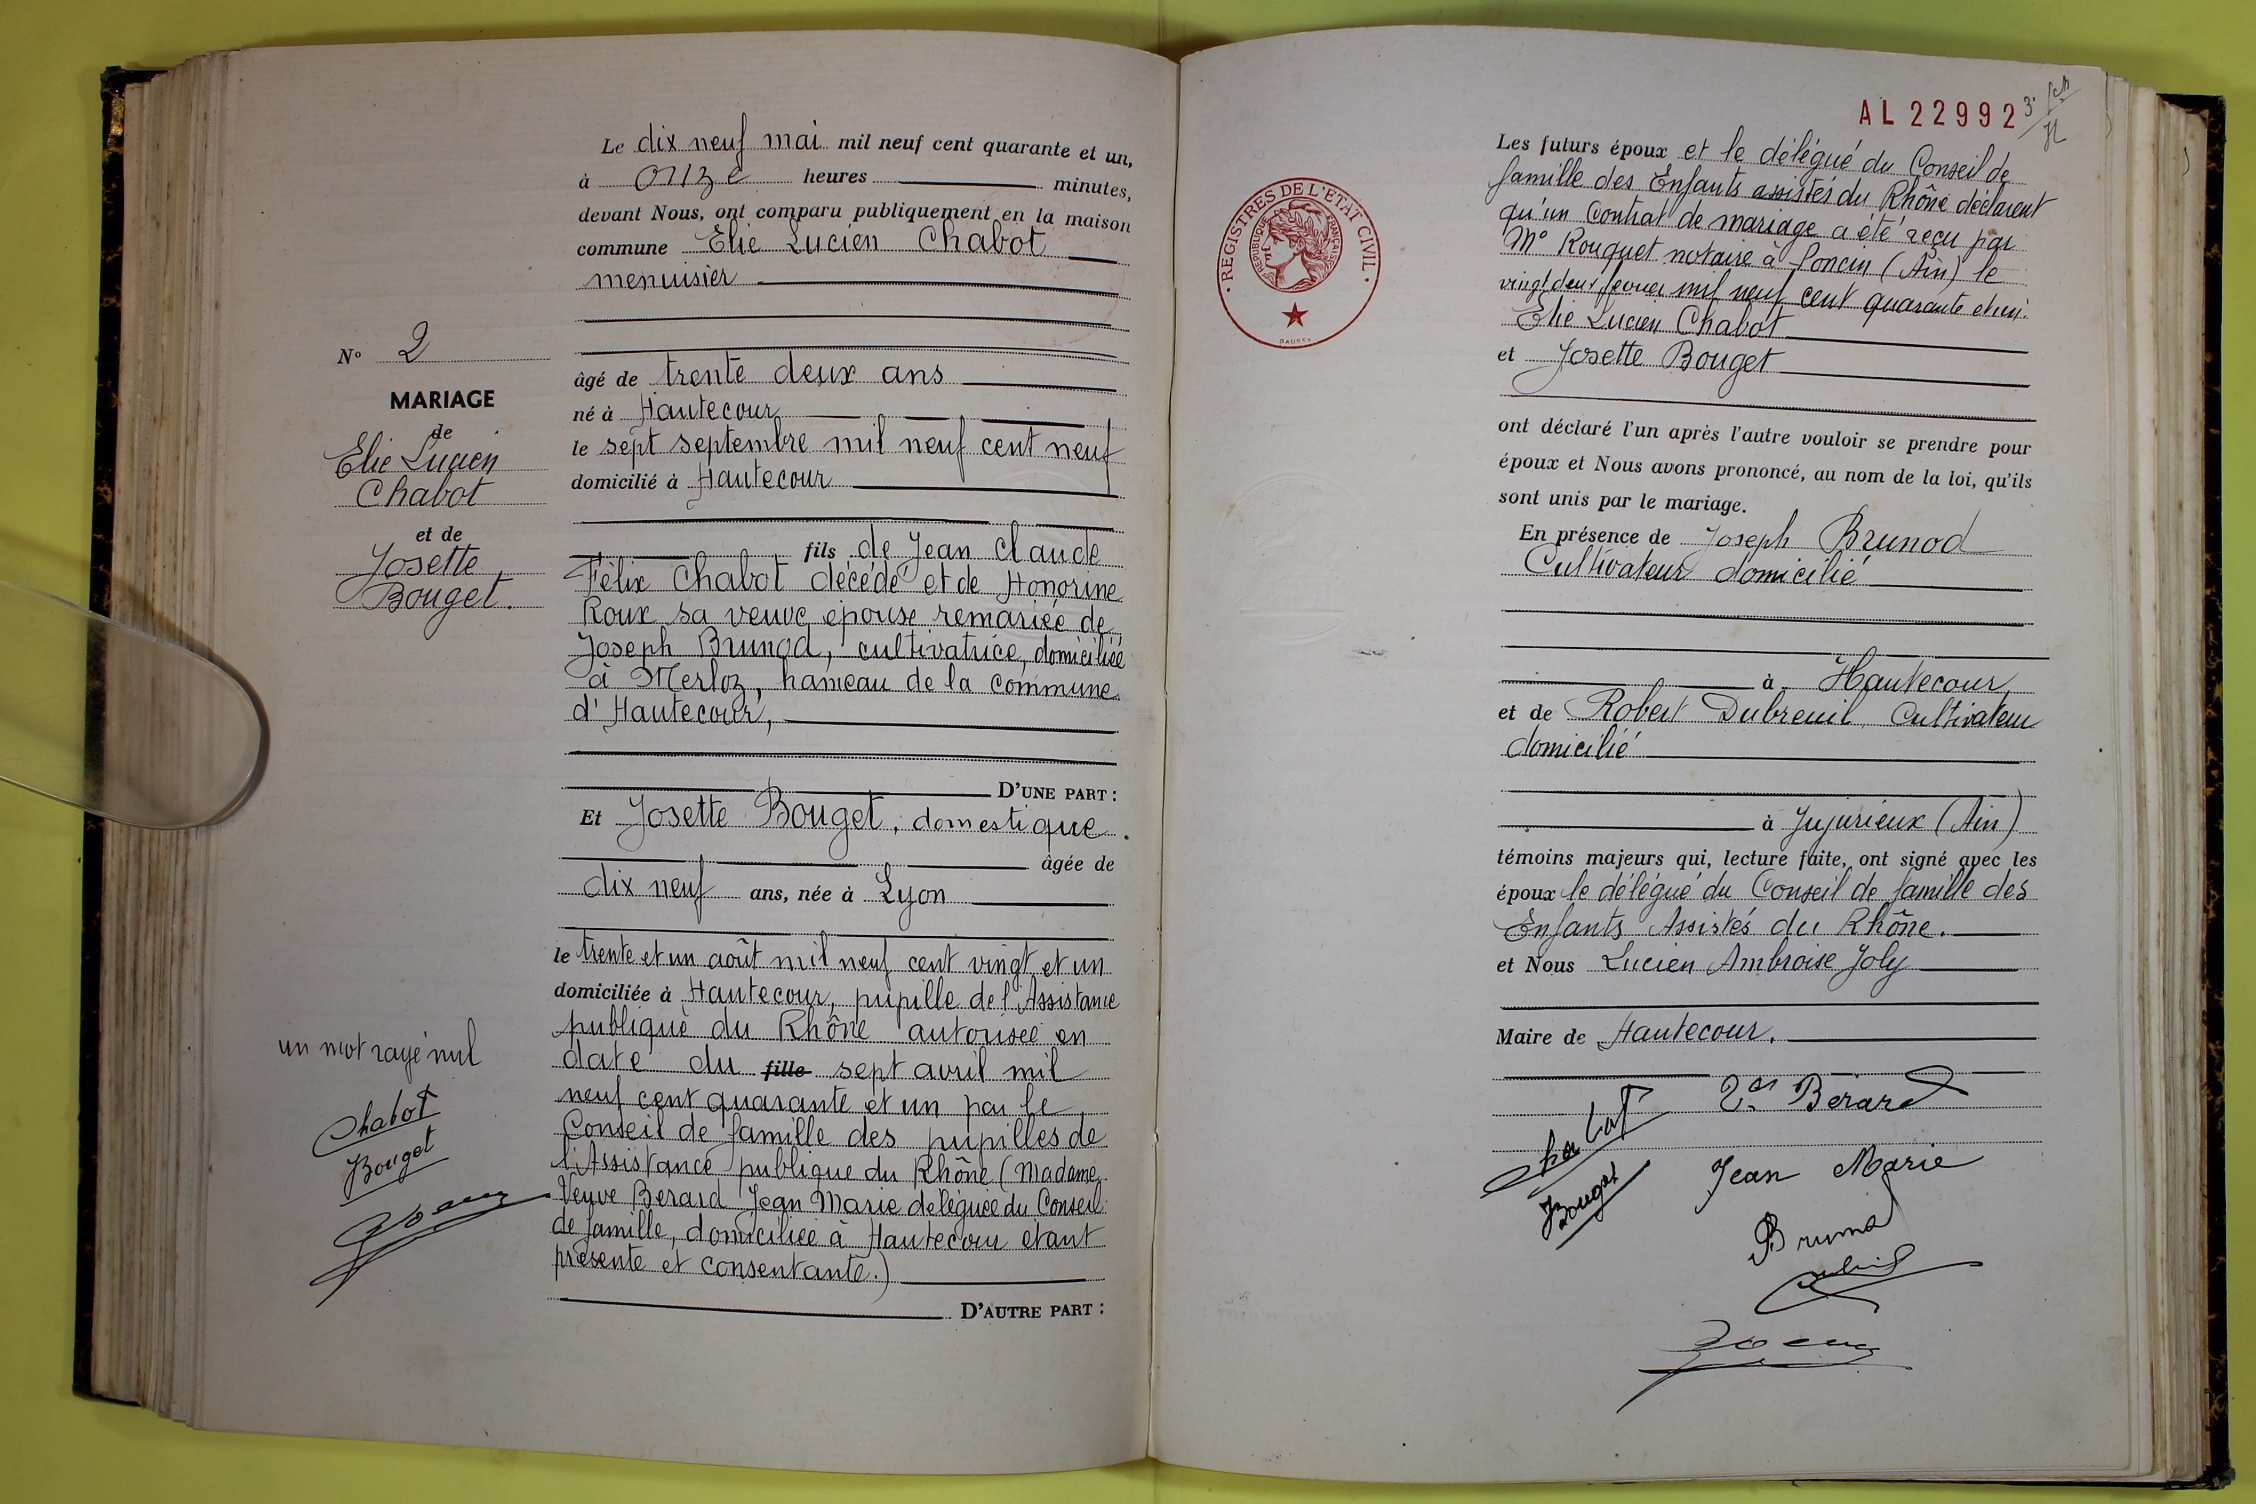 Le dix neuf mai mil neuf cent quarante et un,
à onze heures minutes,
devant Nous, ont comparu publiquement en la maison
commune Elie Lucien Chabot
menuisier
âgé de trente deux ans
né à Hautecour
le sept septembre mil neuf cent neuf
domicilié à Hautecour
fils de Jean Claude
Félix Chabot décédé et de Honorine
Roux sa veuve epouse remariée de
Joseph Brunod, cultivatrice, domiciliée
à Merloz, hameau de la commune
d'Hautecour,
D'UNE PART :
Et Josette Bouget, domestique.
âgée de
dix neuf ans, née à Lyon
le trente et un août mil neuf cent vingt et un
domiciliée à Hautecour, pupille de l'Assistance
publique du Rhône autorisée en
date du fille sept avril mil
neuf cent quarante et un par le
Conseil de famille des pupilles de
l'Assistance publique du Rhône (Madame
Veuve Berard Jean Marie déléguée du Conseil
de famille, domiciliée à Hautecour étant
présente et consentante.)
D'AUTRE PART :
No 2
MARIAGE
de
Elie Lucien
Chabot
et de
Josette
Bouget.
un mot rayé nul
Chabot
Bouget
AL 22992
REGISTRES DE L'ETAT CIVIL
REPUBLIQUE FRANÇAISE
Les futurs époux et le délégué du Conseil de
famille des Enfants assistés du Rhône déclarent
qu'un contrat de mariage a été reçu par
Me Rouquet notaire à Poncin (Ain) le
vingt deux mil neuf cent quarante et un.
Elie Lucien Chabot
et Josette Bouget
ont déclaré l'un après l'autre vouloir se prendre pour
époux et Nous avons prononcé, au nom de la loi, qu'ils
sont unis par le mariage.
En présence de Joseph Brunod
Cultivateur domicilié
à Hautecour,
et de Robert Dubreuil Cultivateur
domicilié
à Jujurieux (Ain)
témoins majeurs qui, lecture faite, ont signé avec les
époux le délégué du Conseil de famille des
Enfants Assistés du Rhône.
et Nous Lucien Ambroise Joly
Maire de Hautecour.
Chabot
Bouget
Vve Bérard
Jean Marie
Brunod